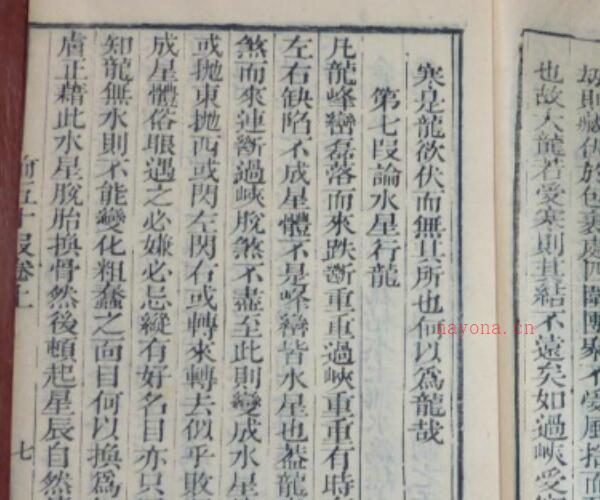 刼則藏伏於包裹處四圍團聚不受風捨而
也故大龍若受寒則其結不遠矣如過峽受
寒是龍欲伏而無其所也何以為龍哉
第七叚論水星行龍
凡龍峰巒磊落而來跌斷重重過峽重重有時
左右缺陷不成星體不是峰巒皆水星也葢龍
煞而來連斷過峽脫煞不盡至此則變成水星
或拋東拋西或閃左閃右或轉來轉去似乎敗
成星體俗眼遇之必嫌必忌縱有好名目亦只
知龍無水則不能變化粗蠢之面目何以換爲
膚正藉此水星脫胎換骨然後頓起星辰自然
五十叚卷上
七
nayona.cn